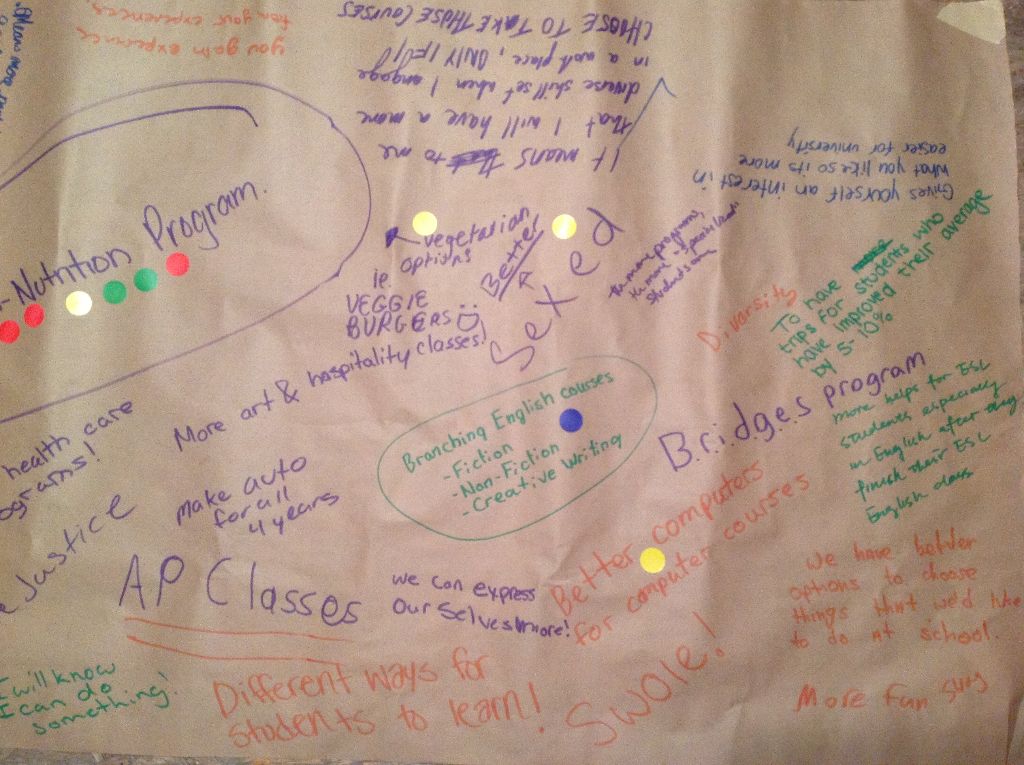 you gain experience
CHOOSE TO TAKE THOSE COURSES
in a work place, ONLY IF
diverse skill set when I engage
that I will have a more
It means to me
Gives yourself an interest in
what you like so its more
easier for university
-Nutrition Program.
vegetarian
options
ie.
VEGGIE
BURGERS
Better
Sex ed
More art & hospitality classes!
Diversity
To have
trips for students who
have improved their average
by 5-10%
Bridges program
more helps for ESL
students especially
in English after they
finish their ESL
English class
Branching English courses
- Fiction
- Non-Fiction
- Creative Writing
health care
ograms!
Justice
make auto
for all
4 years
AP Classes
we can express
our selves more!
Better computers
for computer courses
We have better
options to choose
things that we'd like
to do at school.
More fun
I will know
I can do
something!
Different ways for
students to learn!
Swole!